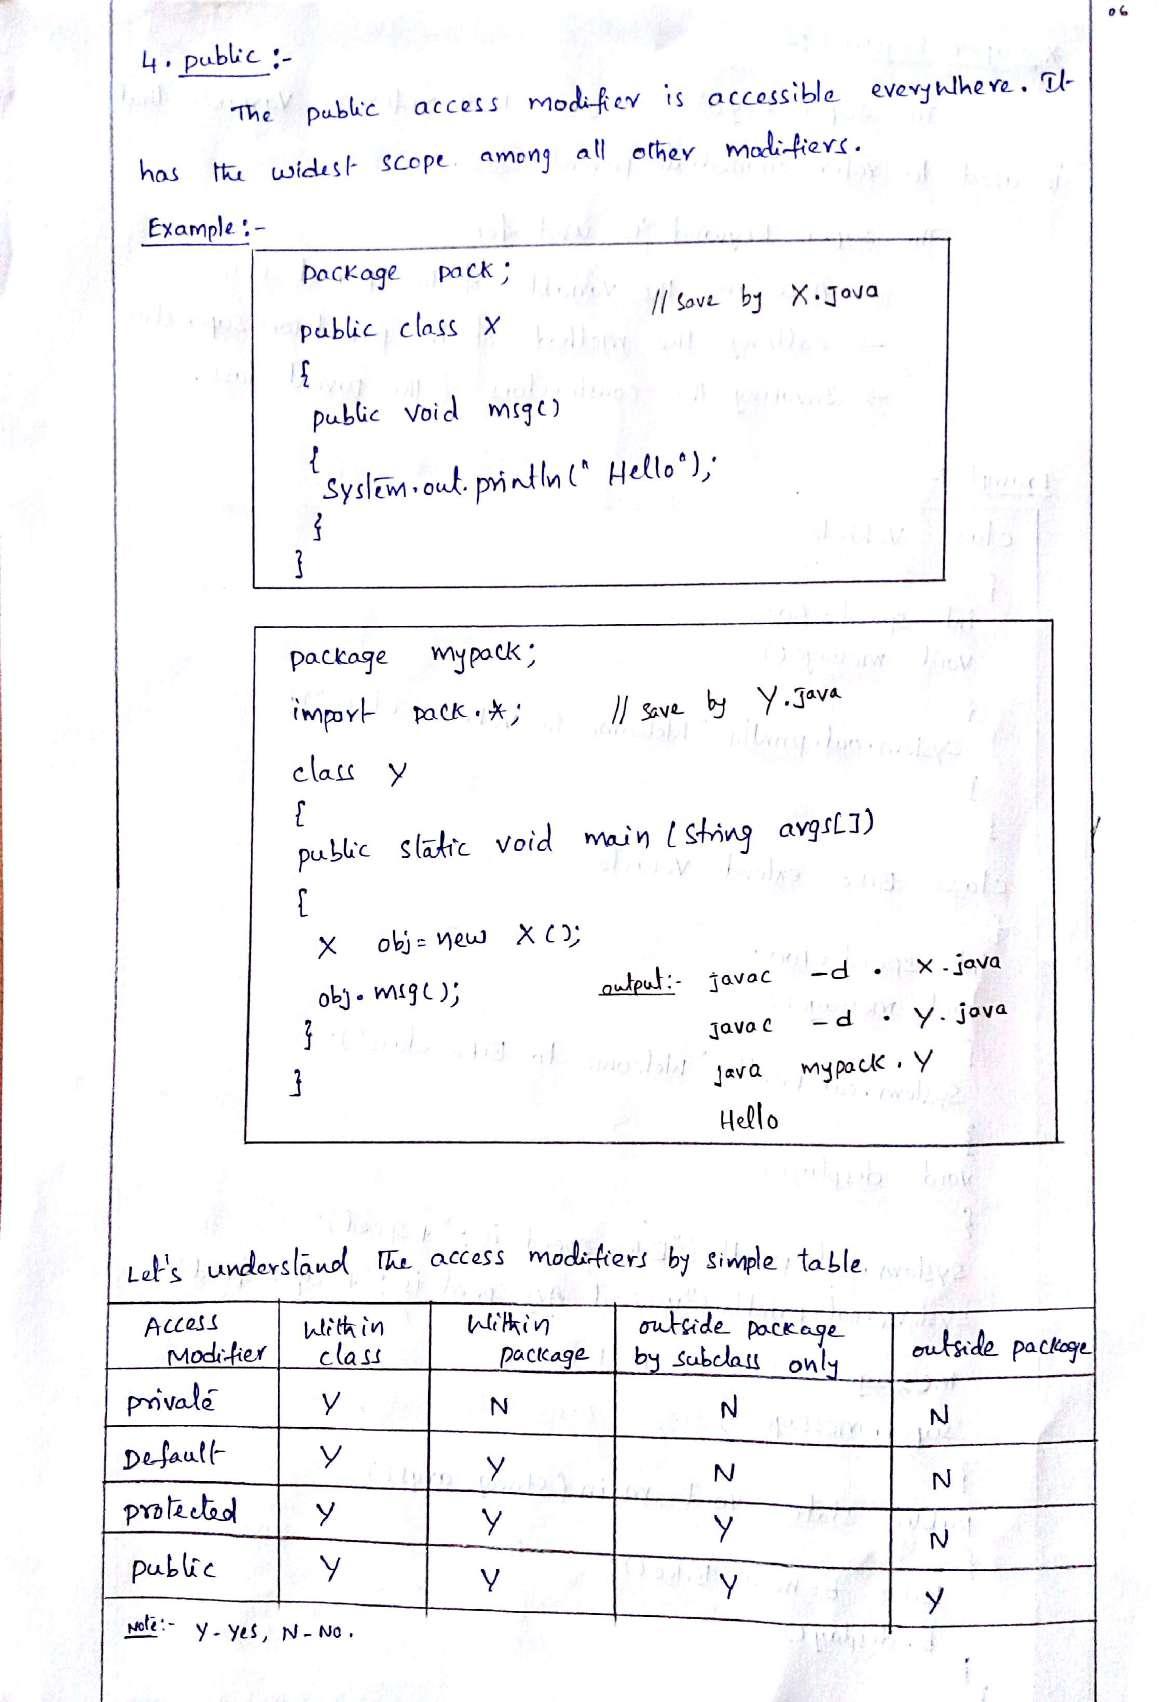 06
4. public :-
The public access modifier is accessible everywhere. It
has the widest scope among all other modifiers.
Example :-
package pack;
// save by X.java
public class X
{
public void msg()
{
System.out.println(" Hello");
}
}
package mypack;
import pack.*;    // save by Y.java
class Y
{
public static void main (String args[])
{
X obj = new X();
obj.msg();
}
}
output:- javac -d . X.java
javac -d . Y.java
java mypack.Y
Hello
Let's understand The access modifiers by simple table.
Access Modifier | Within class | Within package | outside package by subclass only | outside package
private | Y | N | N | N
Default | Y | Y | N | N
protected | Y | Y | Y | N
public | Y | Y | Y | Y
Note:- Y-Yes, N-No.